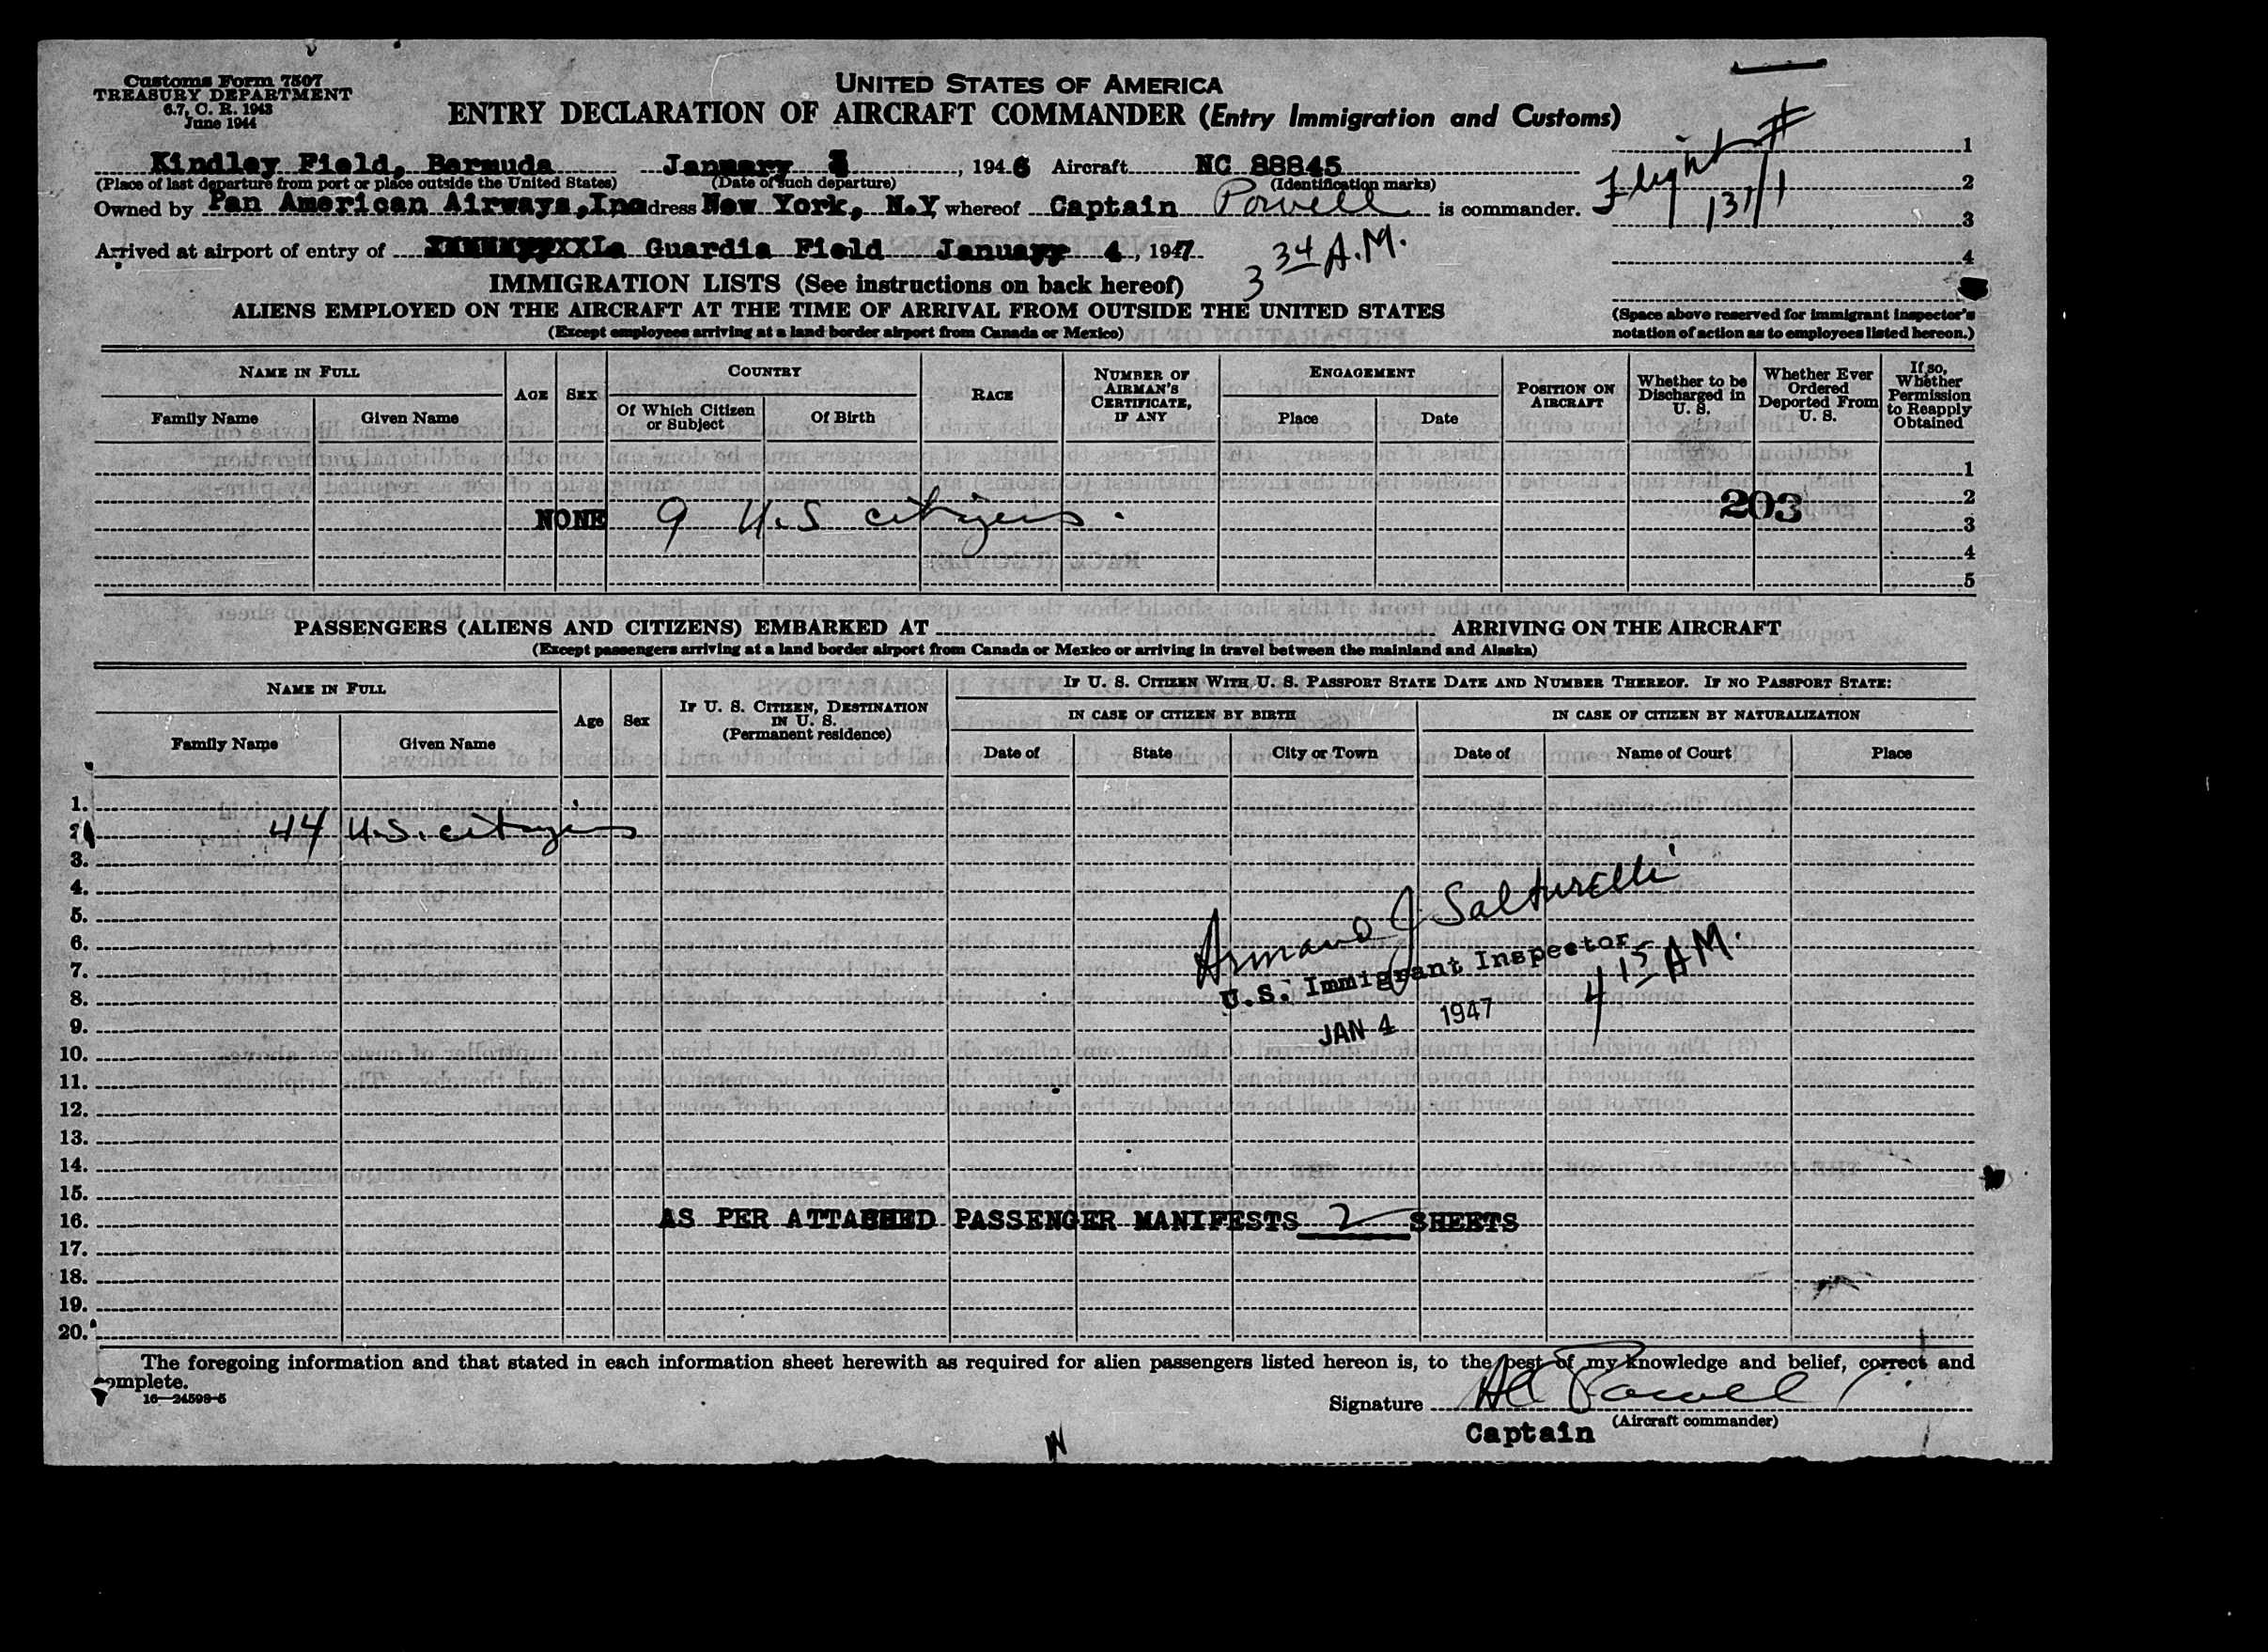 Customs Form 7507
TREASURY DEPARTMENT
6.7, C. R. 1943
June 1944
UNITED STATES OF AMERICA
ENTRY DECLARATION OF AIRCRAFT COMMANDER (Entry Immigration and Customs)
Flight #
137/1
1
2
3
4
Kindley Field, Bermuda January 3, 1946 Aircraft NC 88845
(Place of last departure from port or place outside the United States) (Date of such departure) (Identification marks)
Owned by Pan American Airways, Inc dress New York, N.Y. whereof Captain Powell is commander.
Arrived at airport of entry of La Guardia Field January 4, 1947
3 34 A.M.
IMMIGRATION LISTS (See instructions on back hereof)
ALIENS EMPLOYED ON THE AIRCRAFT AT THE TIME OF ARRIVAL FROM OUTSIDE THE UNITED STATES
(Except employees arriving at a land border airport from Canada or Mexico)
(Space above reserved for immigrant inspector's
notation of action as to employees listed hereon.)
NAME IN FULL
Family Name
Given Name
AGE
SEX
COUNTRY
Of Which Citizen
or Subject
Of Birth
RACE
NUMBER OF
AIRMAN'S
CERTIFICATE,
IF ANY
ENGAGEMENT
Place
Date
POSITION ON
AIRCRAFT
Whether to be
Discharged in
U. S.
Whether Ever
Ordered
Deported From
U. S.
If so,
Whether
Permission
to Reapply
Obtained
1
2
203
NONE 9 U.S citizens.
3
4
5
PASSENGERS (ALIENS AND CITIZENS) EMBARKED AT ARRIVING ON THE AIRCRAFT
(Except passengers arriving at a land border airport from Canada or Mexico or arriving in travel between the mainland and Alaska)
NAME IN FULL
Family Name
Given Name
Age
Sex
IF U. S. CITIZEN, DESTINATION
IN U. S.
(Permanent residence)
IF U. S. CITIZEN WITH U. S. PASSPORT STATE DATE AND NUMBER THEREOF. IF NO PASSPORT STATE:
IN CASE OF CITIZEN BY BIRTH
IN CASE OF CITIZEN BY NATURALIZATION
Date of
State
City or Town
Date of
Name of Court
Place
1.
2. 44 U.S. citizens
3.
4.
5.
6.
7.
8.
9.
10.
11.
12.
13.
14.
15.
Armand J Salturelli
U.S. Immigrant Inspector
4 15 AM.
JAN 4 1947
16. AS PER ATTACHED PASSENGER MANIFESTS 2 SHEETS
17.
18.
19.
20.
The foregoing information and that stated in each information sheet herewith as required for alien passengers listed hereon is, to the best of my knowledge and belief, correct and
complete.
16—24598-5
Signature Powell
(Aircraft commander)
Captain